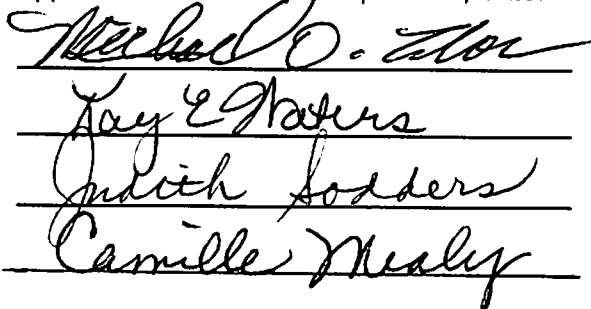 Michael O.
Kay E Waters
Judith Sodders
Camille Mealy